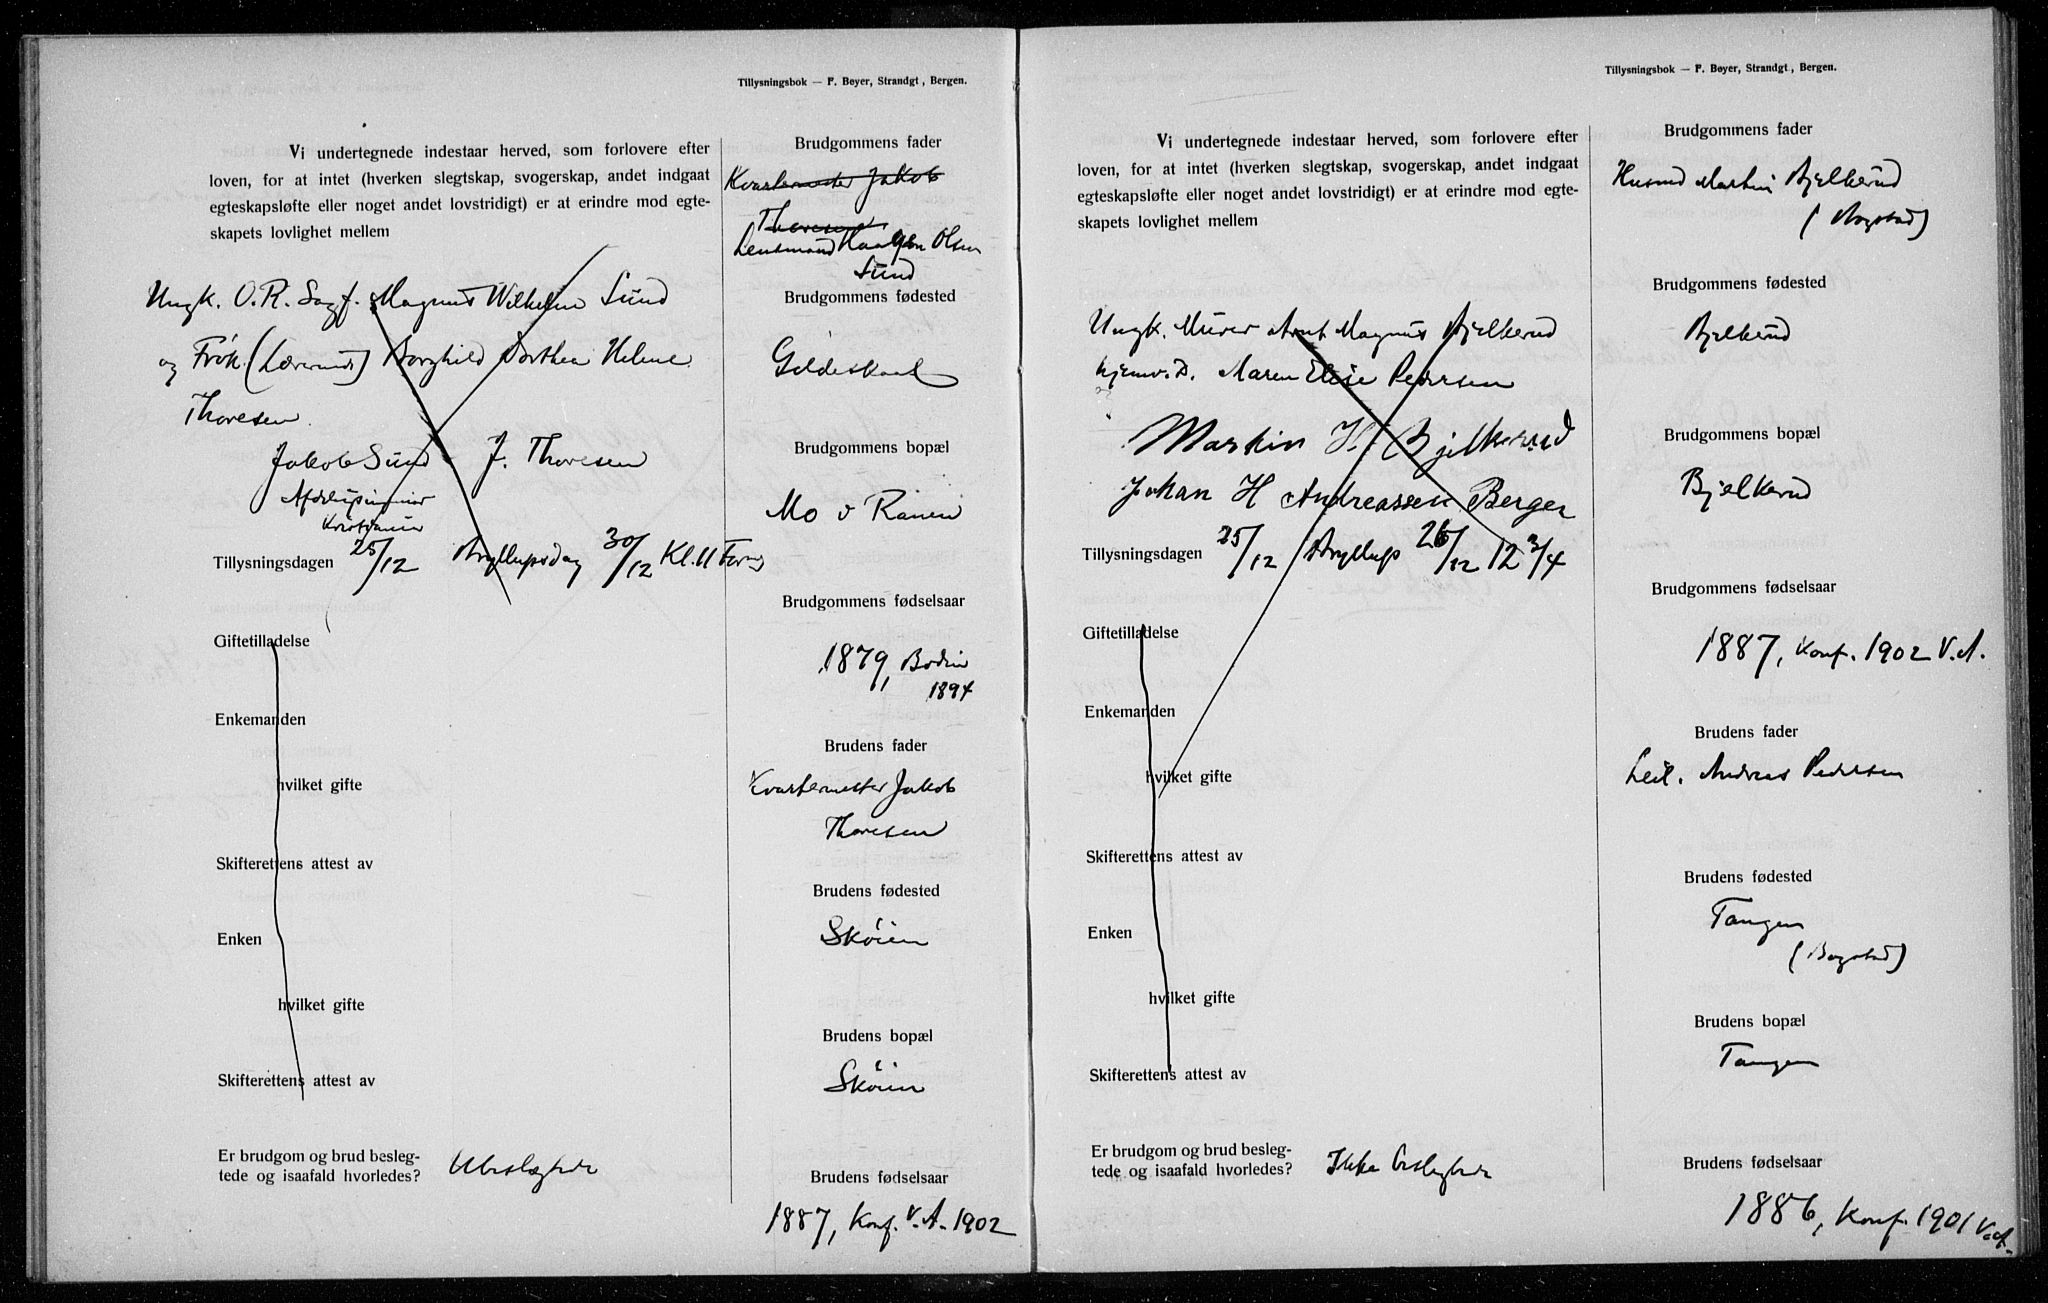 Tillysningsbok — F. Beyer, Strandgt, Bergen.
Vi undertegnede indestaar herved, som forlovere efter
loven, for at intet (hverken slegtskap, svogerskap, andet indgaat
egteskapsløfte eller noget andet lovstridigt) er at erindre mod egte-
skapets lovlighet mellem
Ungk. O.R. Sagf. Magnus Wilhelm Sund
og Frøk (Lærerinde) Borghild Dorthea Helene
Thoresen
Jakob Sund J. Thoresen
Kristiania
Tillysningsdagen 25/12 Bryllupsdag 30/12 Kl. 11 Form
Giftetilladelse
Enkemanden
hvilket gifte
Skifterettens attest av
Enken
hvilket gifte
Skifterettens attest av
Er brudgom og brud besleg-
tede og isaafald hvorledes? Ubeslegtede
Brudgommens fader
Kvartermester Jakob
Thoresen
Lensmand Haagen Olsen
Sund
Brudgommens fødested
Gildeskaal
Brudgommens bopæl
Mo i Ranen
Brudgommens fødselsaar
1879, Bodin
1894
Brudens fader
Kvartermester Jakob
Thoresen
Brudens fødested
Skøien
Brudens bopæl
Skøien
Brudens fødselsaar
1887, Konf. V.A. 1902
Tillysningsbok — F. Beyer, Strandgt, Bergen.
Vi undertegnede indestaar herved, som forlovere efter
loven, for at intet (hverken slegtskap, svogerskap, andet indgaat
egteskapsløfte eller noget andet lovstridigt) er at erindre mod egte-
skapets lovlighet mellem
Ungk. Murer Arnt Magnus Bjelkerud
hjemv. D. Maren Elise Pedersen
Martin H. Bjelkerud
Johan H Andreassen Berger
Tillysningsdagen 25/12 Bryllup 26/12 12 3/4
Giftetilladelse
Enkemanden
hvilket gifte
Skifterettens attest av
Enken
hvilket gifte
Skifterettens attest av
Er brudgom og brud besleg-
tede og isaafald hvorledes? Ikke beslegtede
Brudgommens fader
Husmd Martin Bjelkerud
(Bogstad)
Brudgommens fødested
Bjelkerud
Brudgommens bopæl
Bjelkerud
Brudgommens fødselsaar
1887, Konf. 1902 V.A.
Brudens fader
Leil. Andreas Pedersen
Brudens fødested
Tangen
(Bogstad)
Brudens bopæl
Tangen
Brudens fødselsaar
1886, Konf. 1901 V.A.